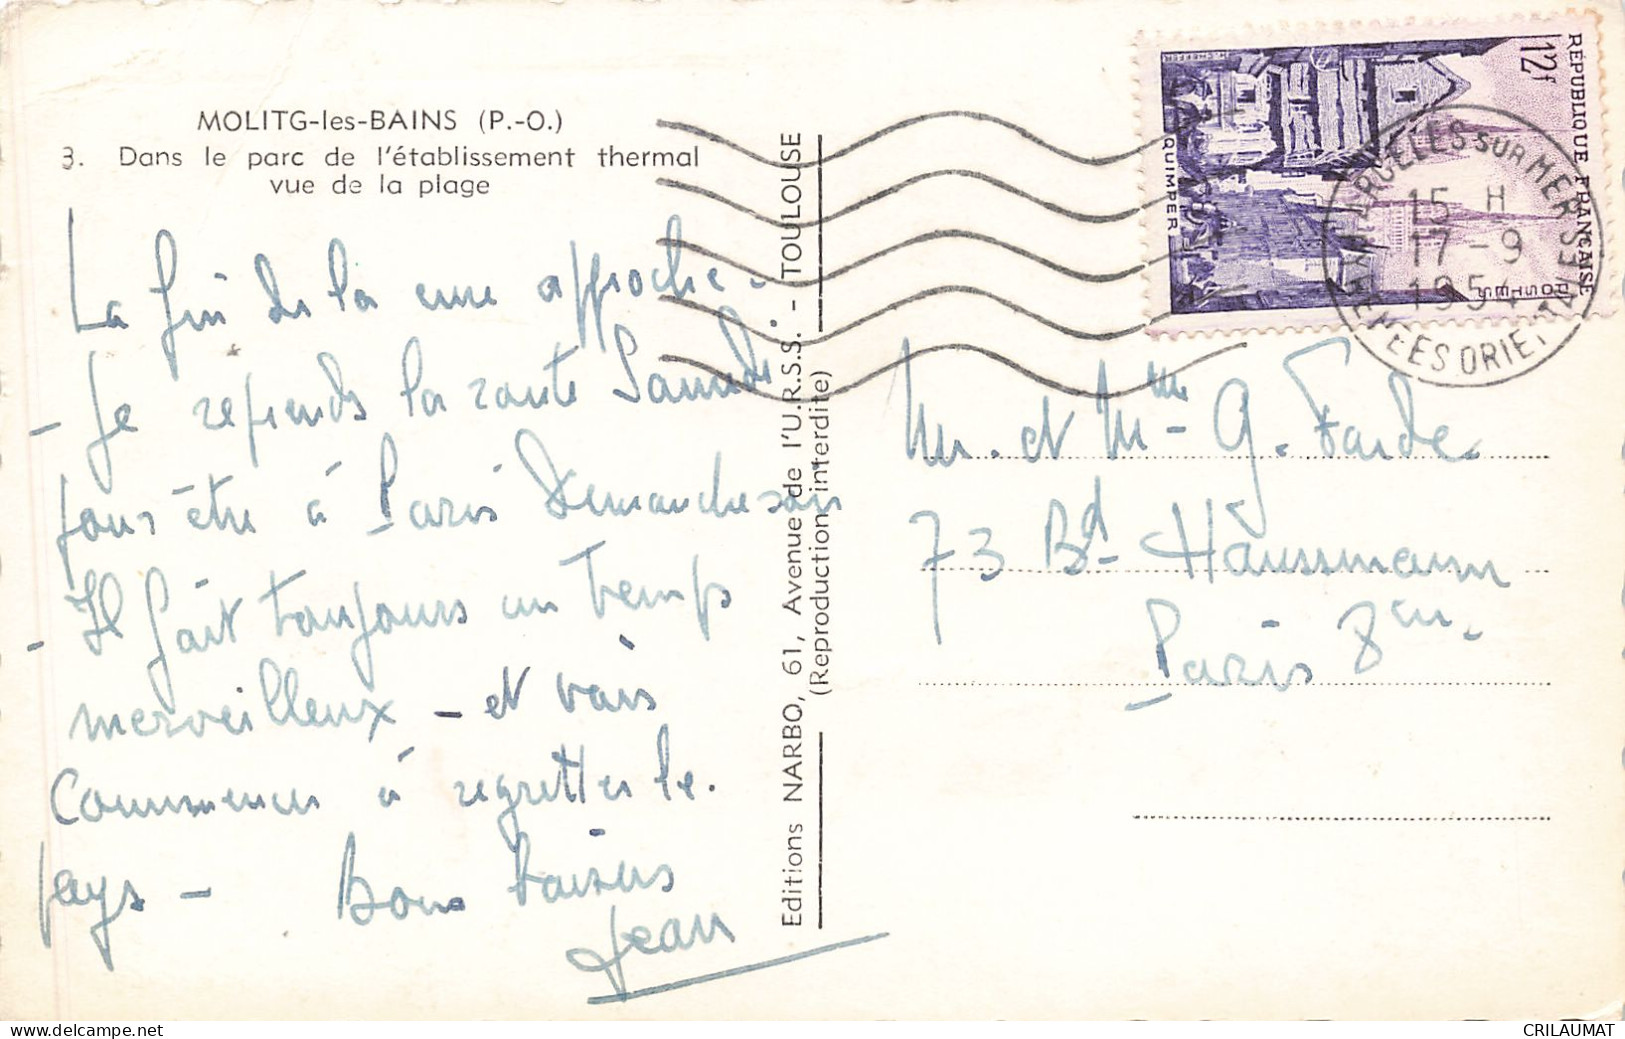 MOLITG-les-BAINS (P.-O.)
3. Dans le parc de l'établissement thermal
vue de la plage
La fin de la cure approche -
- Je reprends la route Samedi
pour être à Paris Dimanche soir
- Il fait toujours un temps
merveilleux - et vais
commencer à regretter le
pays - Bons baisers
Jean
Editions NARBO, 61, Avenue de l'U.R.S.S. - TOULOUSE
(Reproduction interdite)
RÉPUBLIQUE FRANÇAISE
POSTES
12F
QUIMPER
H. CHEFFER
ARGELÈS SUR MER
15 H
17 - 9
195
PYRÉNÉES ORIENTALES
Mr. et Mme G. Farde
73 Bd Haussmann
Paris 8em.
CRILAUMAT